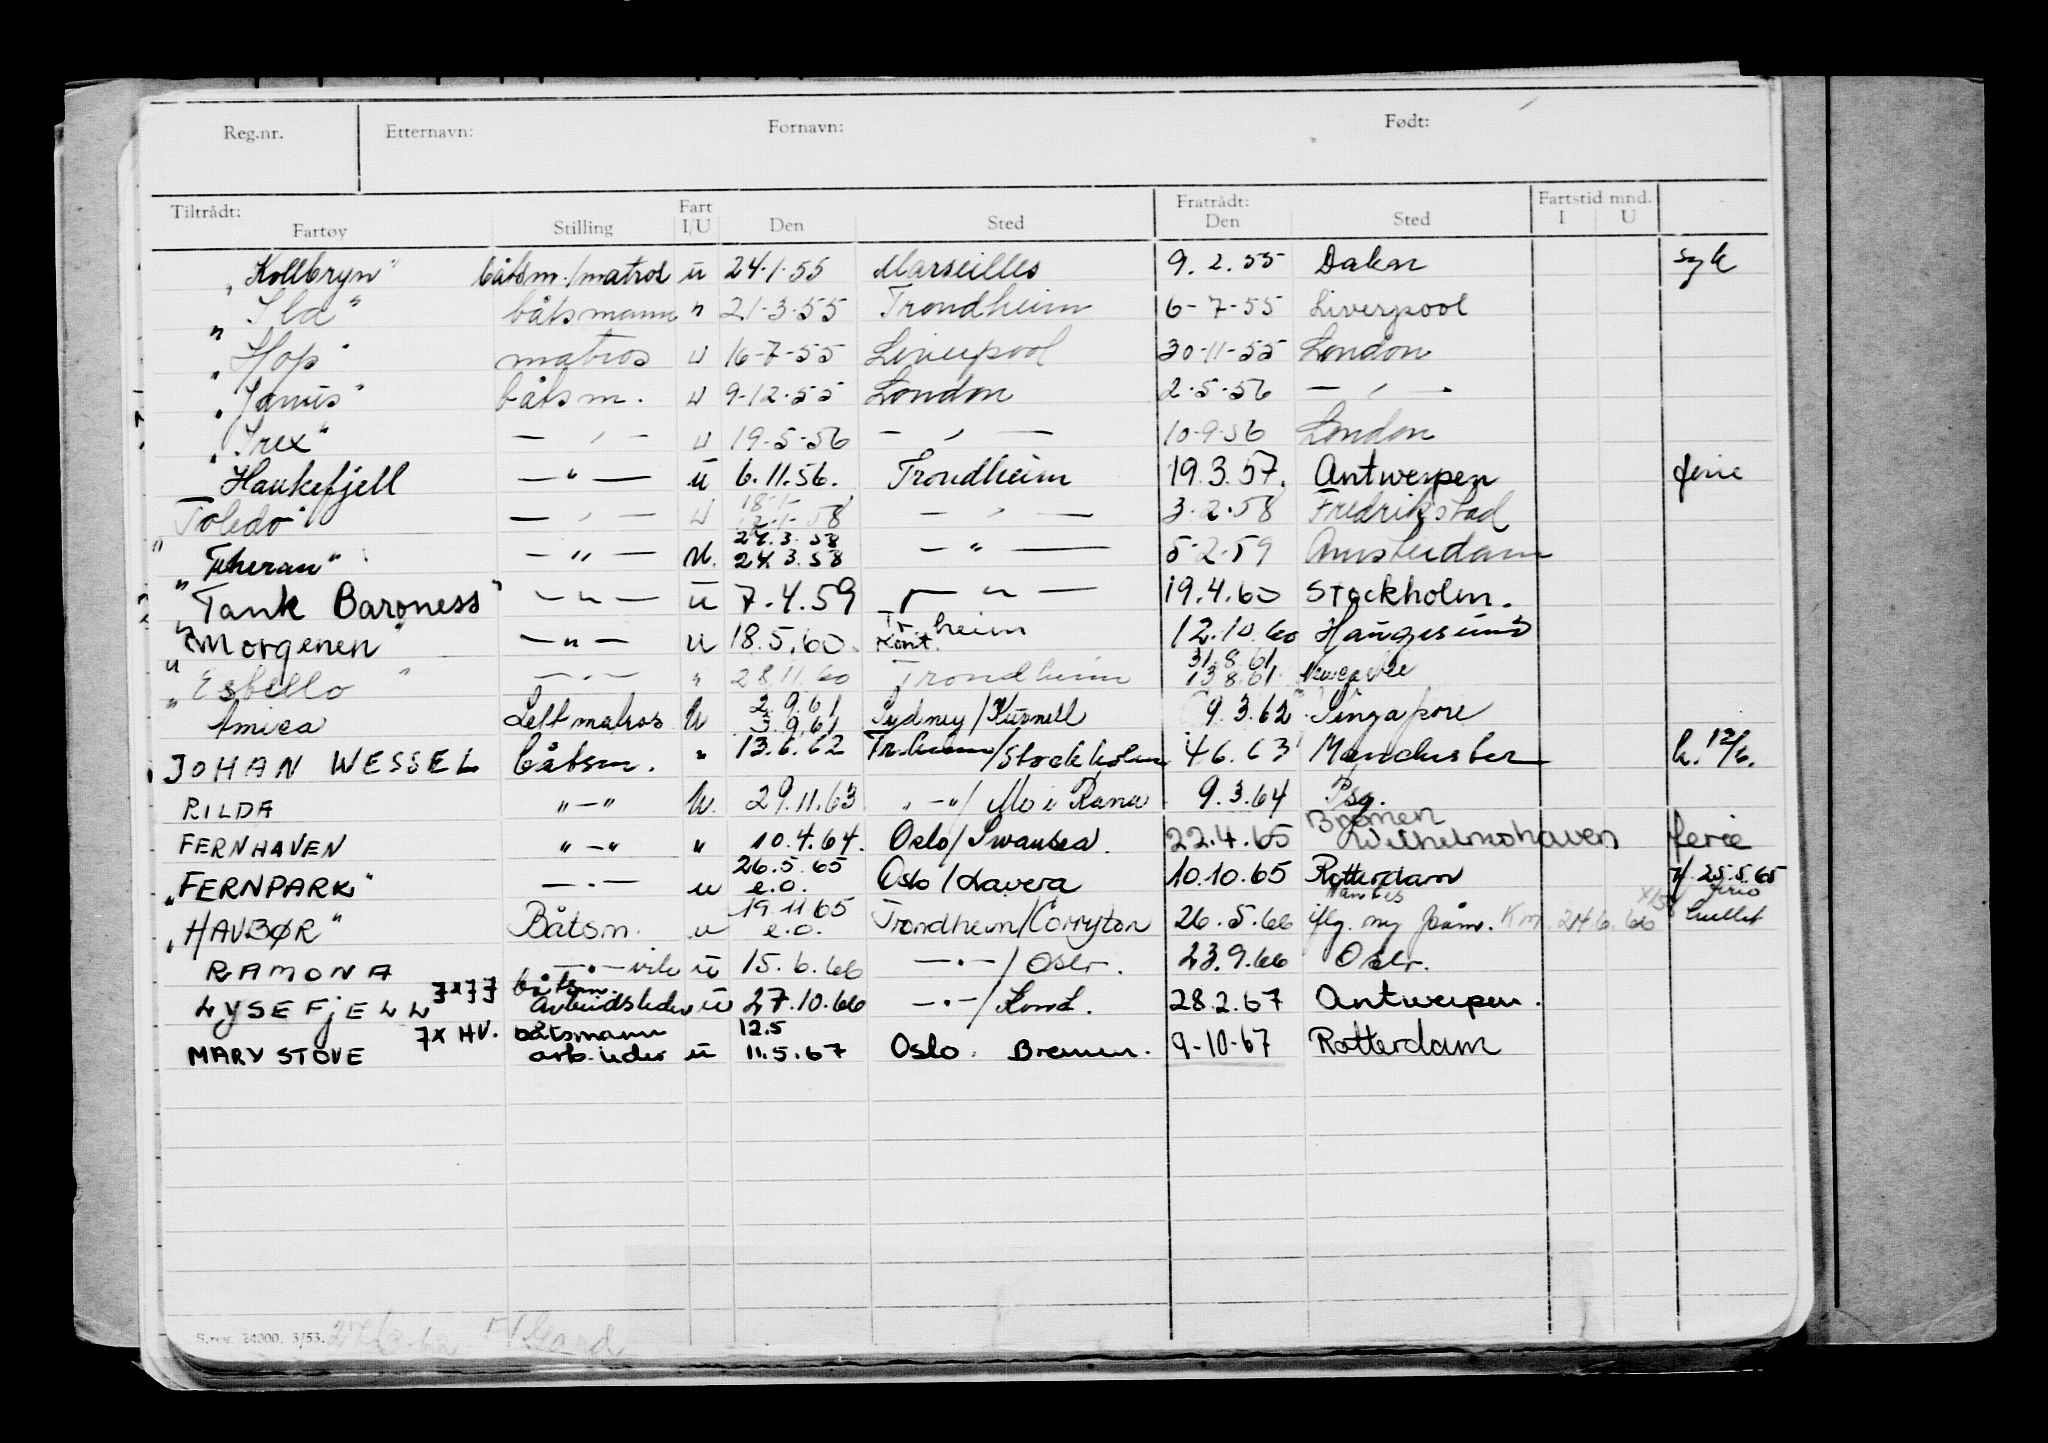 Reg.nr. Etternavn: Fornavn: Født:
Tiltrådt: Fratrådt: Fartstid mnd.
Fartøy Stilling Fart I/U Den Sted Den Sted I U
"Kollbryn" båtsm./matros u 24.1.55 Marseilles 9.2.55 Dakar syk
"Ila" båtsmann " 21-3-55 Trondheim 6-7-55 Liverpool
"Hop" matros u 16-7-55 Liverpool 30-11-55 London
"Janus" båtsm. u 9-12-55 London 2-5-56 — " —
"Irex" — " — u 19-5-56 — " — 10-9-56 London
Haukefjell — " — u 6.11.56. Trondheim 19.3.57. Antwerpen ferie
"Toledo" — " — u 18-1- 12-1-58 — " — 3-2-58 Fredrikstad
"Teheran" — " — u. 24.3.58 24.3.58 — " — 5-2-59 Amsterdam
"Tank Baroness" — " — u 7.4.59 — " — 19.4.60 Stockholm.
"Morgenen" — " — u 18.5.60 Tr.heim Kont. 12.10.60 Haugesund
"Esbello" — " — " 28.11.60 Trondheim 31.8.61 13.8.61
Amica Lettmatros u 2.9.61 3.9.61 Sydney/Kurnell 9.3.62 Singapore
JOHAN WESSEL båtsm. " 13.6.62 Tr.heim/Stockholm 4.6.63 Manchester h. 12/6.
RILDA " — " u. 29.11.63 " — "/Mo i Rana 9.3.64 Psg.
FERNHAVEN " — " " 10.4.64. Oslo/Swansea. 22.4.65 Bremen Wilhelmshaven ferie
"FERNPARK" — " — u 26.5.65 e.o. Oslo/Lavera 10.10.65 Rotterdam 25.5.65
"HAVBØR" Båtsm. u 19.11.65 e.o. Trondheim/Corryton 26.5.66 Nantes iflg. ny påm. 24.6.66 ferie
RAMONA — " — u 15.6.66 — " —/Oslo. 23.9.66 Oslo.
LYSEFJELL båtsm. Arbeidsleder u 27.10.66 — " —/Lond. 28.2.67 Antwerpen.
MARY STOVE 7X HV. båtsmann arb.leder u 12.5 11.5.67 Oslo. Bremen. 9-10-67 Rotterdam
S.reg. 24000. 3/53.